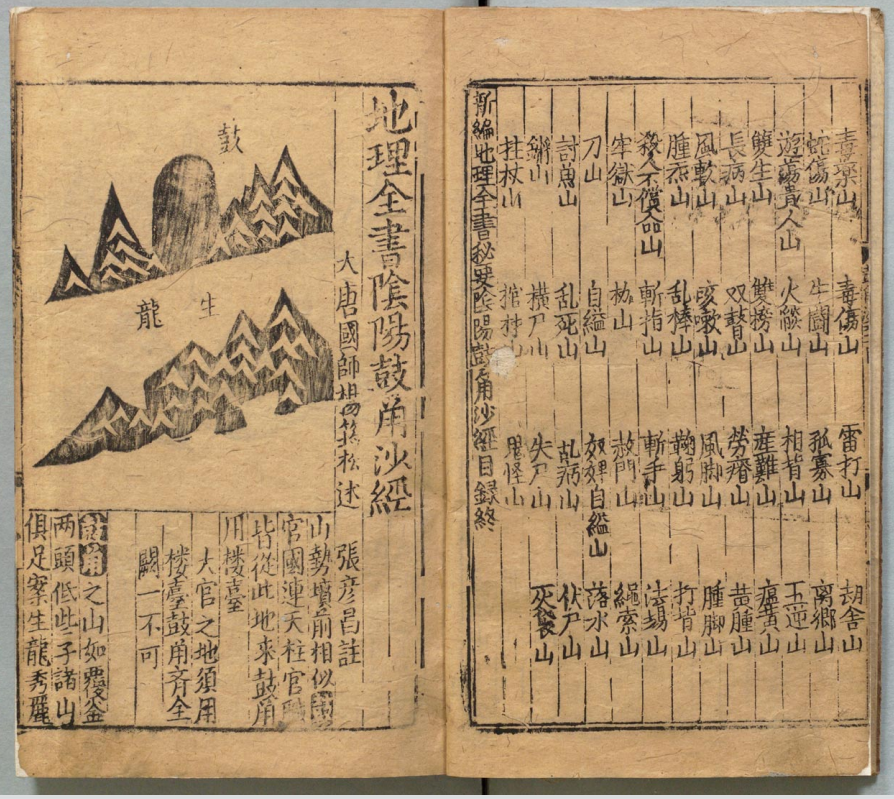 毒藥山 毒傷山 雷打山 刼舍山
蛇傷山 牛鬪山 孤寡山 离鄉山
遊蕩 人山 火熖山 相背山 五逆山
雙生山 雙 山 産難山 瘟黄山
長病山 双瞽山 勞瘠山 黄腫山
風軟山 咳嗽山 風脚山 腫脚山
腫 山 乱棒山 鞠躬山 打背山
殺人不償命山 斬指山 斬手山 法場山
牢獄山 枷山 赦門山 繩索山
刀山 自縊山 奴婢自縊山 落水山
討魚山 乱死山 乱病山 伏尸山
山 横尸山 失尸山 灰袋山
拄杖山 棺材山 鬼怪山
新編地理全書秘要陰陽鼓角沙經目録終
地理全書陰陽鼓角沙經
大唐國師楊筠松述
張彦昌註
鼓
生龍
山勢壙前相似
官國連天柱官
皆從此地來鼓角
用楼臺
大官之地須用
楼臺鼓角齐全
闕一不可
鼓角之山如覆釜
两頭低些子諸山
俱足案生龍秀麗